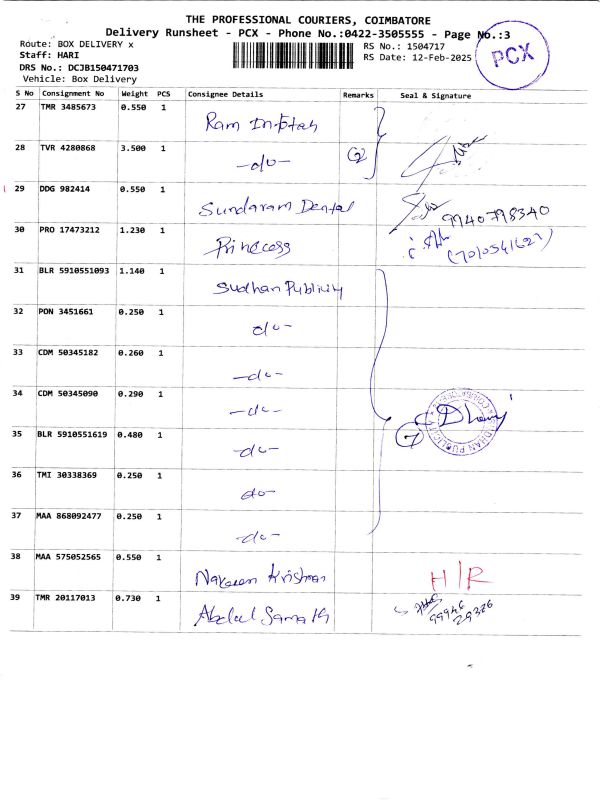 THE PROFESSIONAL COURIERS, COIMBATORE
Delivery Runsheet - PCX - Phone No.:0422-3505555 - Page No.:3
Route: BOX DELIVERY x
RS No.: 1504717
Staff: HARI
RS Date: 12-Feb-2025
PCX
DRS No.: DCJB150471703
Vehicle: Box Delivery
S No Consignment No Weight PCS Consignee Details Remarks Seal & Signature
27 TMR 3485673 0.550 1 Ram
28 TVR 4280868 3.500 1 -do- 2
29 DDG 982414 0.550 1 Sundaram Dental 9940798340
30 PRO 17473212 1.230 1 Princess
31 BLR 5910551093 1.140 1 Sudhan Publicity
32 PON 3451661 0.250 1 do-
33 CDM 50345182 0.260 1 -do-
34 CDM 50345090 0.290 1 -do-
35 BLR 5910551619 0.480 1 -do- 7
36 TMI 30338369 0.250 1 do-
37 MAA 868092477 0.250 1 -do-
38 MAA 575052565 0.550 1 Naveen Krishnan H/R
39 TMR 20117013 0.730 1 Abdul Samath 99946 29326